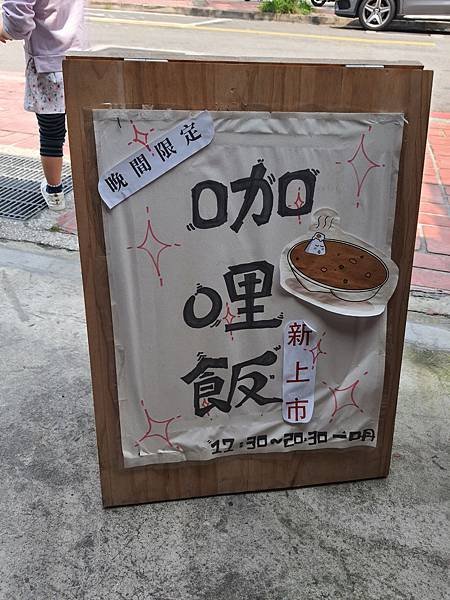 晚間限定
咖
哩
飯
新上市
17:30~20:30